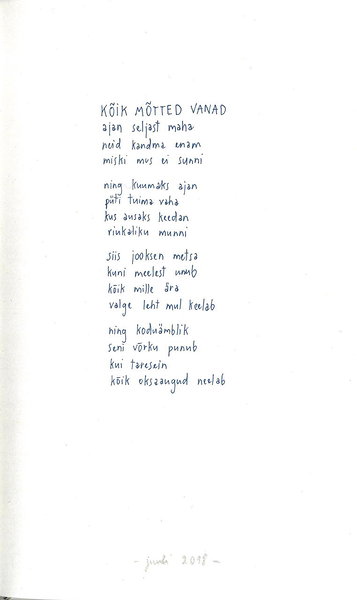 KÕIK MÕTTED VANAD
ajan seljast maha
neid kandma enam
miski mus ei sunni
ning kuumaks ajan
püti tuima vaha
kus ausaks keedan
riukaliku munni
siis jooksen metsa
kuni meelest unub
kõik mille ära
valge leht mul keelab
ning koduämblik
seni võrku punub
kui taresein
kõik oksaaugud neelab
- juuli 2018 -